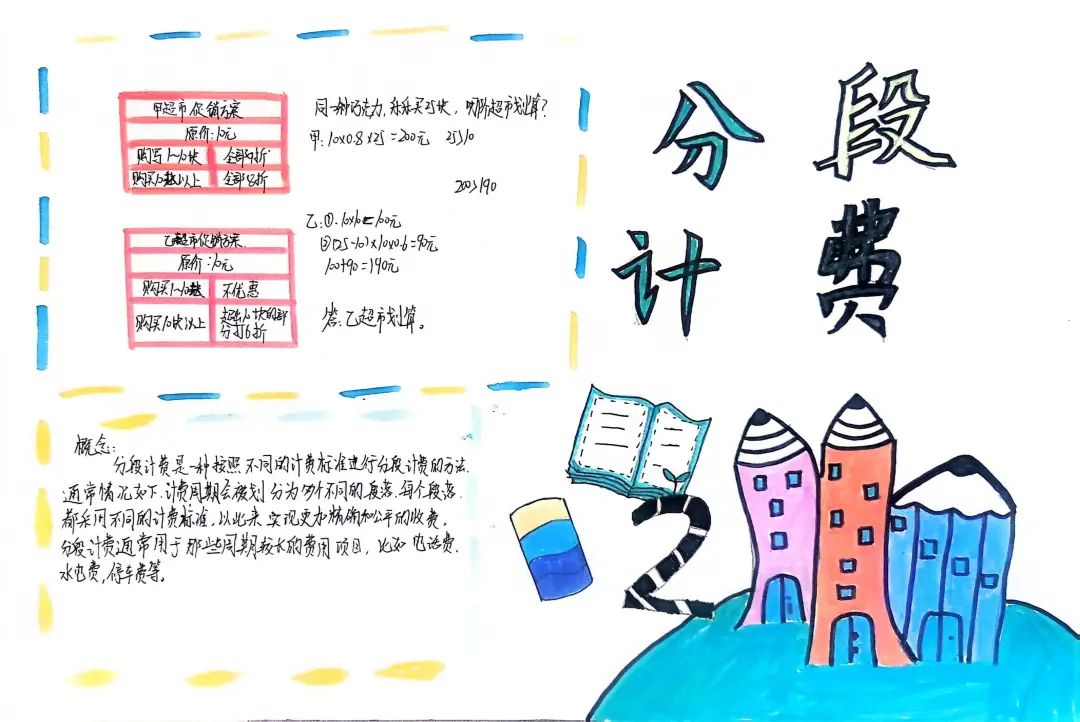 分段
计费
甲超市促销方案
原价:10元
购买1~10块 全部9折
购买10块以上 全部8折
同一种巧克力,乐乐买25块,哪个超市划算?
甲:10×0.8×25=200元 25>10
200>190
乙超市促销方案
原价:10元
购买1~10块 不优惠
购买10块以上 超出10块的部分打6折
乙:①.10×10=100元
②(25-10)×10×0.6=90元
100+90=190元
答:乙超市划算。
概念:
分段计费是一种按照不同的计费标准进行分段计费的方法.
通常情况如下.计费周期会被划分为多个不同的段落.每个段落.
都采用不同的计费标准,以此来实现更加精确和公平的收费.
分段计费通常用于那些周期较长的费用项目,比如电话费.
水电费,停车费等。
2